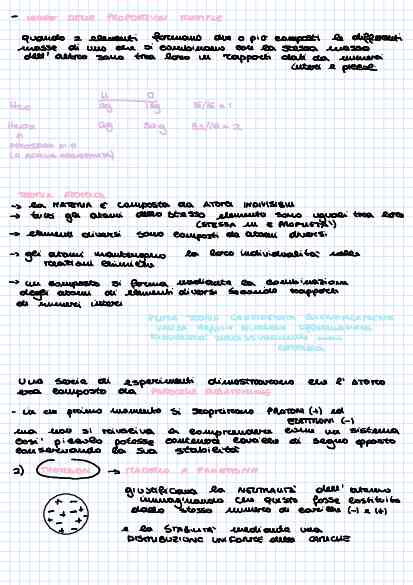 - LEGGE DELLE PROPORZIONI MULTIPLE
quando 2 elementi formano due o più composti le differenti
masse di uno che si combinano con la stessa massa
dell'altro sono tra loro in rapporti dati da numeri
interi e piccoli
H O
H2O 2g 16g 16/16 = 1
H2O2 2g 32g 32/16 = 2
(O ACQUA OSSIGENATA)
TEORIA ATOMICA
→ la MATERIA È composta da ATOMI INDIVISIBILI
→ tutti gli atomi dello STESSO elemento sono uguali tra loro
(STESSA m E PROPRIETÀ)
→ elementi diversi sono composti da atomi diversi
→ gli atomi mantengono la loro individualità nelle
reazioni chimiche
→ un composto si forma mediante la combinazione
degli atomi di elementi diversi secondo rapporti
di numeri interi
Una serie di esperimenti dimostrarono che l'ATOMO
era composto da PARTICELLE SUBATOMICHE
- in un primo momento si scoprirono PROTONI (+) ed
ELETTRONI (-)
ma non si riusciva a comprendere come un sistema
così piccolo potesse contenere cariche di segno opposto
conservando la sua stabilità
2) THOMSON → MODELLO A PANETTONE
giustificava la NEUTRALITÀ dell'atomo
immaginando che questo fosse costituito
dallo stesso numero di cariche (-) e (+)
e la STABILITÀ mediante una
DISTRIBUZIONE UNIFORME delle CARICHE